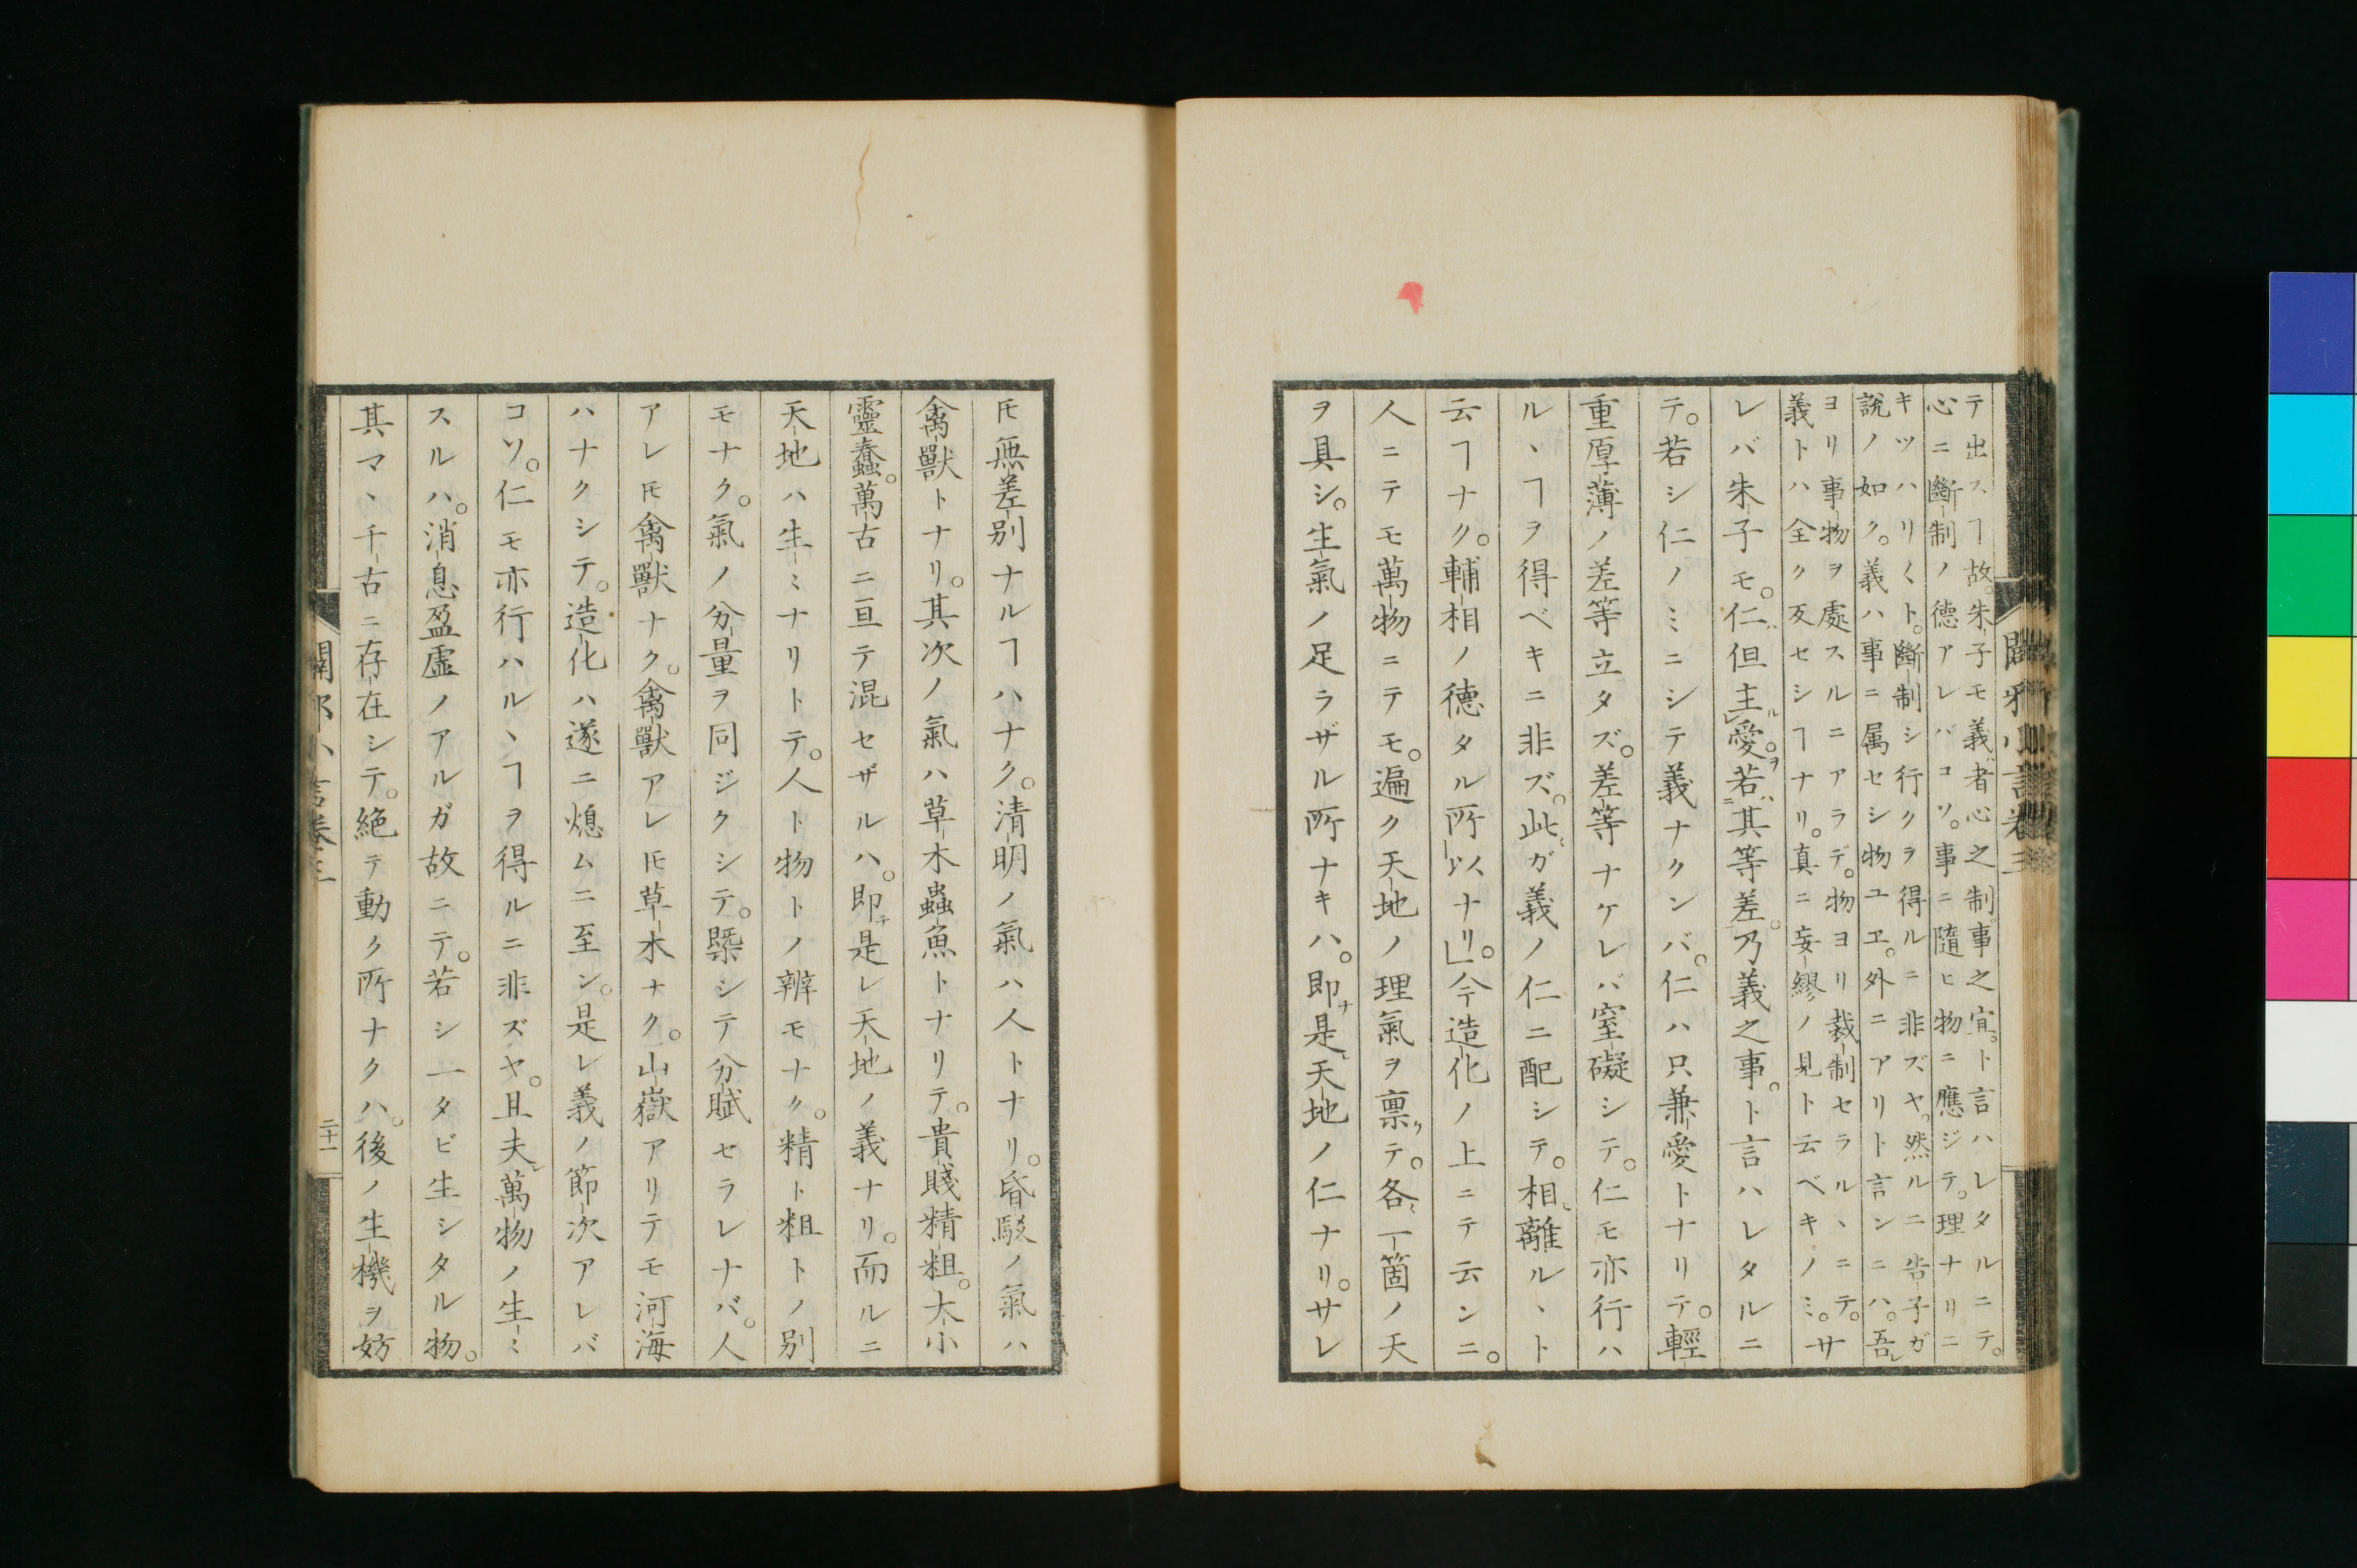 闢邪小言卷三
テ出スヿ故。朱子モ義者心之制。事之宜。ト言ハレタルニテ。
心ニ斷制ノ德アレバコソ。事ニ隨ヒ物ニ應ジテ。理ナリニ
キツハリ〱ト。斷制シ行クヲ得ルニ非ズヤ。然ルニ告子ガ
說ノ如ク。義ハ事ニ属セシ物ユヱ。外ニアリト言ンニハ。吾レ
ヨリ事物ヲ處スルニアラデ。物ヨリ裁制セラルヽニテ。
義トハ全ク反セシヿナリ。真ニ妄繆ノ見ト云ベキノミ。サ
レバ朱子モ。仁ハ但主ルレ愛ヲ。若ハ其等差。乃義之事。ト言ハレタルニ
テ。若シ仁ノミニシテ義ナクンバ。仁ハ只兼愛トナリテ。輕
重厚薄ノ差等立タズ。差等ナケレバ窒礙シテ。仁モ亦行ハ
ルヽヿヲ得ベキニ非ズ。此ガ義ノ仁ニ配シテ。相離ルヽト
云ヿナク。輔相ノ德タル所以ナリ。」今造化ノ上ニテ云ンニ。
人ニテモ萬物ニテモ。遍ク天地ノ理氣ヲ禀ケテ。各一箇ノ天
ヲ具シ。生氣ノ足ラザル所ナキハ。即チ是天地ノ仁ナリ。サレ
𪜈無差別ナルヿハナク。清明ノ氣ハ人トナリ。昏駁ノ氣ハ
禽獸トナリ。其次ノ氣ハ草木蟲魚トナリテ。貴賤精粗。大小
靈蠢。萬古ニ亘テ混セザルハ。即チ是レ天地ノ義ナリ。而ルニ
天地ハ生ミナリトテ。人ト物トノ辨モナク。精ト粗トノ別
モナク。氣ノ分量ヲ同ジクシテ。槩シテ分賦セラレナバ。人
アレ𪜈禽獸ナク。禽獸アレ𪜈草木ナク。山嶽アリテモ河海
ハナクシテ。造化ハ遂ニ熄ムニ至ン。是レ義ノ節次アレバ
コソ。仁モ亦行ハルヽヿヲ得ルニ非ズヤ。且夫レ萬物ノ生ミ
スルハ。消息盈虛ノアルガ故ニテ。若シ一タビ生シタル物。
其マヽ千古ニ存在シテ。絕テ動ク所ナクハ。後ノ生機ヲ妨
闢邪小言卷三
二十一